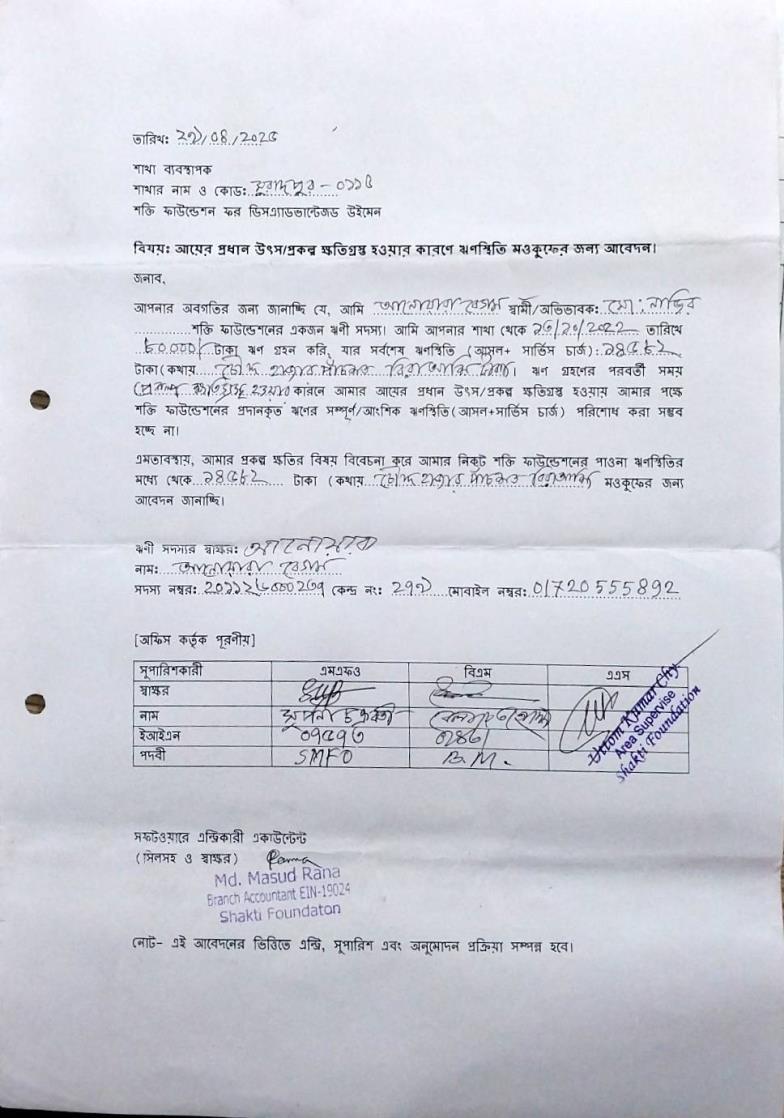 তারিখঃ
শাখা ব্যবস্থাপক
শাখার নাম ও কোডঃ মুরাদপুর - ০১১৫
শক্তি ফাউন্ডেশন ফর ডিসএ্যাডভান্টেজড উইমেন
বিষয়ঃ আয়ের প্রধান উৎস/প্রকল্প ক্ষতিগ্রস্থ হওয়ার কারণে ঋণস্থিতি মওকুফের জন্য আবেদন।
জনাব,
আপনার অবগতির জন্য জানাচ্ছি যে, আমি আনোয়ারা বেগম স্বামী/অভিভাবক: মো: নাজির
শক্তি ফাউন্ডেশনের একজন ঋণী সদস্য। আমি আপনার শাখা থেকে তারিখে
টাকা ঋণ গ্রহন করি, যার সর্বশেষ ঋণস্থিতি (আসল+ সার্ভিস চার্জ): ১৪৫৮২
টাকা (কথায় চৌদ্দ হাজার পাঁচশত বিরাশি টাকা)। ঋণ গ্রহণের পরবর্তী সময়
(প্রকল্প ক্ষতিগ্রস্ত হওয়ার কারনে আমার আয়ের প্রধান উৎস/প্রকল্প ক্ষতিগ্রস্থ হওয়ায় আমার পক্ষে
শক্তি ফাউন্ডেশনের প্রদানকৃত ঋণের সম্পূর্ণ/আংশিক ঋণস্থিতি (আসল+সার্ভিস চার্জ) পরিশোধ করা সম্ভব
হচ্ছে না।
এমতাবস্থায়, আমার প্রকল্প ক্ষতির বিষয় বিবেচনা করে আমার নিকট শক্তি ফাউন্ডেশনের পাওনা ঋণস্থিতির
মধ্যে থেকে ১৪৫৮২ টাকা (কথায় চৌদ্দ হাজার পাঁচশত মওকুফের জন্য
আবেদন জানাচ্ছি।
ঋণী সদস্যর স্বাক্ষর: আনোয়ারা
নাম: আনোয়ারা বেগম
সদস্য নম্বর: কেন্দ্র নং: মোবাইল নম্বর: 01720555892
[অফিস কর্তৃক পূরণীয়]
সুপারিশকারী এমএফও বিএম এএস
স্বাক্ষর
নাম চক্রবর্তী
ইআইএন
পদবী SMFO B.M.
Uttom Kumar City
Area Supervise
Shakti Foundation
সফটওয়ারে এন্ট্রিকারী একাউন্টেন্ট
(সিলসহ ও স্বাক্ষর)
Md. Masud Rana
Branch Accountant EIN-19024
Shakti Foundaton
নোট- এই আবেদনের ভিত্তিতে এন্ট্রি, সুপারিশ এবং অনুমোদন প্রক্রিয়া সম্পন্ন হবে।